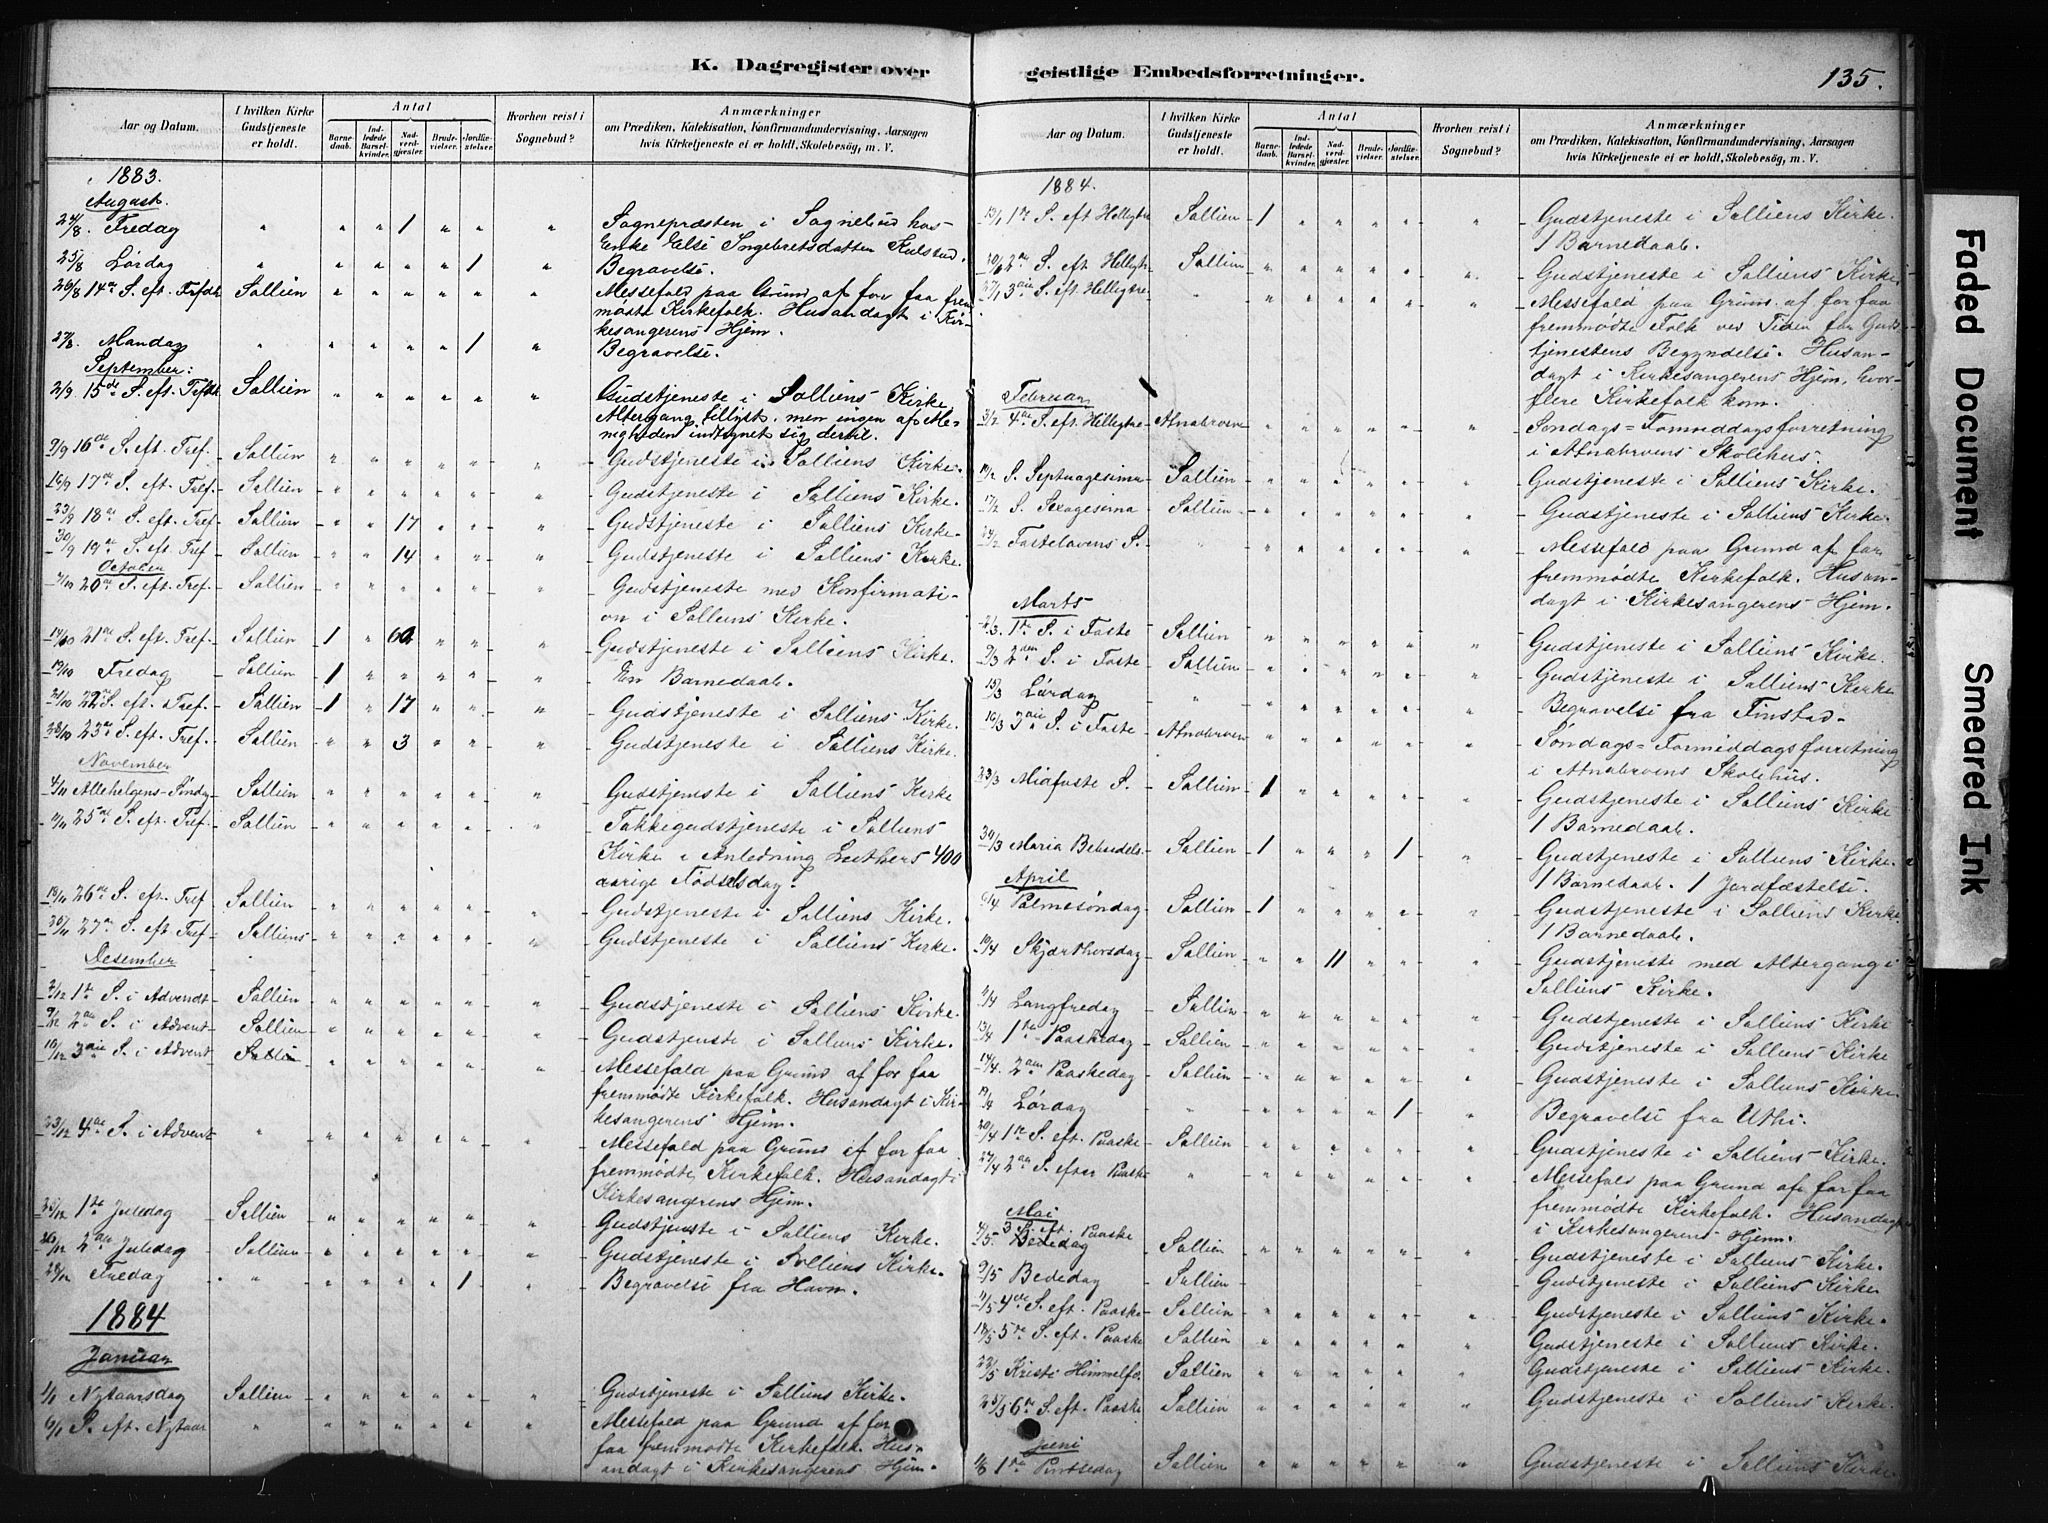 K. Dagregister over geistlige Embedsforretninger. 135.
Aar og Datum. I hvilken Kirke Gudstjeneste er holdt. Antal Barnedaab. Indledede Barselkvinder. Nadverdgjester. Brudevielser. Jordfæstelser. Hvorhen reist i Sognebud? Anmærkninger om Prædiken, Katekisation, Konfirmandundervisning, Aarsagen hvis Kirketjeneste ei er holdt, Skolebesög, m. V.
1883.
August.
24/8. Fredag " " " 1 " " " Sognepræsten i Sognebud hos
Enke Else Ingebretsdatter Kulstad.
25/8 Lørdag " " " " " 1 " Begravelse.
26/8 14de S. eft. Trefdh Sollien " " " " " " Messefald paa Grund af for faa frem
mødte Kirkefolk. Husandagt i Kir-
kesangerens Hjem.
27/8. Mandag " " " " " 1 " Begravelse.
September:
2/9 15de S. eft. Trefdh Sollien " " " " " " Gudstjeneste i Solliens Kirke
Altergang tillyst, men ingen af Me-
nigheden indtegnet sig dertil.
9/9 16de S. eft. Tref. Sollien " " " " " " Gudstjeneste i Solliens Kirke.
16/9 17de S. eft. Tref. Sollien " " " " " " Gudstjeneste i Solliens Kirke.
23/9 18de S. eft. Tref. Sollien " " 17 " " " Gudstjeneste i Solliens Kirke.
30/9 19de S. eft. Tref Sollien " " 14 " " " Gudstjeneste i Solliens Kirke.
October
7/10 20de S. eft. Tref. Sollien " " " " " " Gudstjeneste med Konfirmati-
on i Solliens Kirke.
14/10 21de S. eft. Tref. Sollien 1 " " " " Gudstjeneste i Solliens Kirke.
19/10 Fredag Sollien 1 " " " " " En Barnedaab.
21/10 22de S. eft. Tref. Sollien 1 " 17 " " " Gudstjeneste i Solliens Kirke.
28/10 23de S. eft. Tref. Sollien " " 3 " " " Gudstjeneste i Solliens Kirke.
November
4/11 Allehelgens-Søndg Sollien " " " " " " Gudstjeneste i Solliens Kirke
11/11 25de S. eft. Tref Sollien " " " " " " Takkegudstjeneste i Solliens
Kirke i Anledning Luthers 400
aarige Fødselsdag.
18/11 26de S. eft. Tref Sollien " " " " " " Gudstjeneste i Solliens Kirke.
27de S. eft. Tref. Solliens " " " " " " Gudstjeneste i Solliens Kirke.
Desember
2/12 1ste S. i Advendt Sollien " " " " " " Gudstjeneste i Solliens Kirke.
9/12 2den S. i Advent Sollien " " " " " " Gudstjenste i Solliens Kirke.
16/12 3die S. i Advent Sollien " " " " " " Messefald paa Grund af for faa
fremmødte Kirkefolk. Husandagt i Kir-
kesangerens Hjem.
23/12 4de S. i Advent " " " " " " " Messefald paa Grund af for faa
fremmødte Kirkefolk. Husandagt i
Kirkesangerens Hjem.
25/12 1ste Juledag Sollien " " " " " " Gudstjeneste i Solliens Kirke.
26/12 2den Juledag Sollien " " " " " " Gudstjeneste i Solliens Kirke.
28/12 Fredag " " " " " 1 " Begravelse fra Havm.
1884
Januar
1/1 Nytaarsdag Sollien " " " " " " Gudstjeneste i Solliens Kirke.
6/1 S. eft. Nytaar " " " " " " " Messefald paa Grund af for
faa fremmødte Kirkefolk. Hus-
andagt i Kirkesangerens Hjem.
Aar og Datum. I hvilken Kirke Gudstjeneste er holdt. Antal Barnedaab. Indledede Barselkvinder. Nadverdgjester. Brudevielser. Jordfæstelser. Hvorhen reist i Sognebud? Anmærkninger om Prædiken, Katekisation, Konfirmandundervisning, Aarsagen hvis Kirketjeneste ei er holdt, Skolebesög, m. V.
1884.
13/1 1ste S. eft Helligtre Sollien 1 " " " " " Gudstjeneste i Solliens Kirke.
1 Barnedaab.
2den S. eft Helligtre Sollien " " " " " " Gudstjeneste i Solliens Kirke,
27/1 3die S. eft. Helligtre " " " " " " " Messefald paa Grund af for faa
fremmødte Folk ved Tiden for Guds
tjenestens Begyndelse. Husan-
dagt i Kirkesangerens Hjem, hvor
flere Kirkefolk kom.
Februar
3/2 4de S. eft. Helligtre Atnabroen " " " " " " Søndags=Formiddagsforretning
i Atnabroens Skolehus.
10/2 S. Septuagesima Sollien " " " " " " Gudstjeneste i Solliens Kirke.
17/2 S. Sexagesima Sollien " " " " " " Gudstjeneste i Solliens Kirke.
24/2 Fastelavens S. " " " " " " " Messefald paa Grund af faa
fremmødte Kirkefolk. Husan-
dagt i Kirkesangerens Hjem.
Marts
2/3. 1ste S. i Faste Sollien " " " " " " Gudstjeneste i Solliens Kirke.
9/3 2den S. i Faste Sollien " " " " " " Gudstjeneste i Solliens Kirke
15/3 Lørdag " " " " " 1 " Begravelse fra Finstad
16/3 3die S. i Faste Atnabroen " " " " " " Søndags=Formiddagsforretning
i Atnabroens Skolehus.
23/3 Midfaste S. Sollien 1 " " " " " Gudstjeneste i Solliens Kirke
1 Barnedaab.
30/3 Maria Bebudels. Sollien 1 " " " 1 " Gudstjeneste i Solliens Kirke.
1 Barnedaab. 1 Jordfæstelse.
April
6/4 Palmesøndag Sollien 1 " " " " " Gudstjeneste i Solliens Kirke
1 Barnedaab.
10/4 Skjærthorsdag Sollien " " 11 " " " Gudstjeneste med Altergang i
Solliens Kirke.
11/4 Langfredag Sollien " " " " " " Gudstjeneste i Solliens Kirke
13/4 1ste Paaskedag Sollien " " " " " " Gudstjeneste i Solliens Kirke
14/4. 2den Paaskedag Sollien " " " " " " Gudstjeneste i Solliens Kirke
19/4 Lørdag " " " " " 1 " Begravelse fra Uthi.
20/4 1ste S. eft. Paaske Sollien " " " " " " Gudstjeneste i Solliens Kirke.
27/4 2den S. efter Paaske " " " " " " " Messefald paa Grund af for faa
fremmødte Kirkefolk. Husandagt
i Kirkesangerens Hjem.
Mai
4/5. 3 S. eft. Paaske Bededag Sollien " " " " " " Gudstjeneste i Solliens Kirke.
9/5 Bededag Sollien " " " " " " Gudstjeneste i Solliens Kirke
11/5 4de S. eft. Paaske Sollien " " " " " " Gudstjeneste i Solliens Kirke.
18/5 5te S. eft. Paaske Sollien " " " " " " Gudstjeneste i Solliens Kirke.
22/5 Kristi Himmelfa. Sollien " " " " " " Gudstjeneste i Solliens Kirke
25/5 6te S. eft. Paaske Sollien " " " " " " Gudstjeneste i Solliens Kirke.
Juni
1/6 1ste Pintsedag Sollien " " " " " " Gudstjeneste i Solliens Kirke.
Faded Document
Smeared Ink